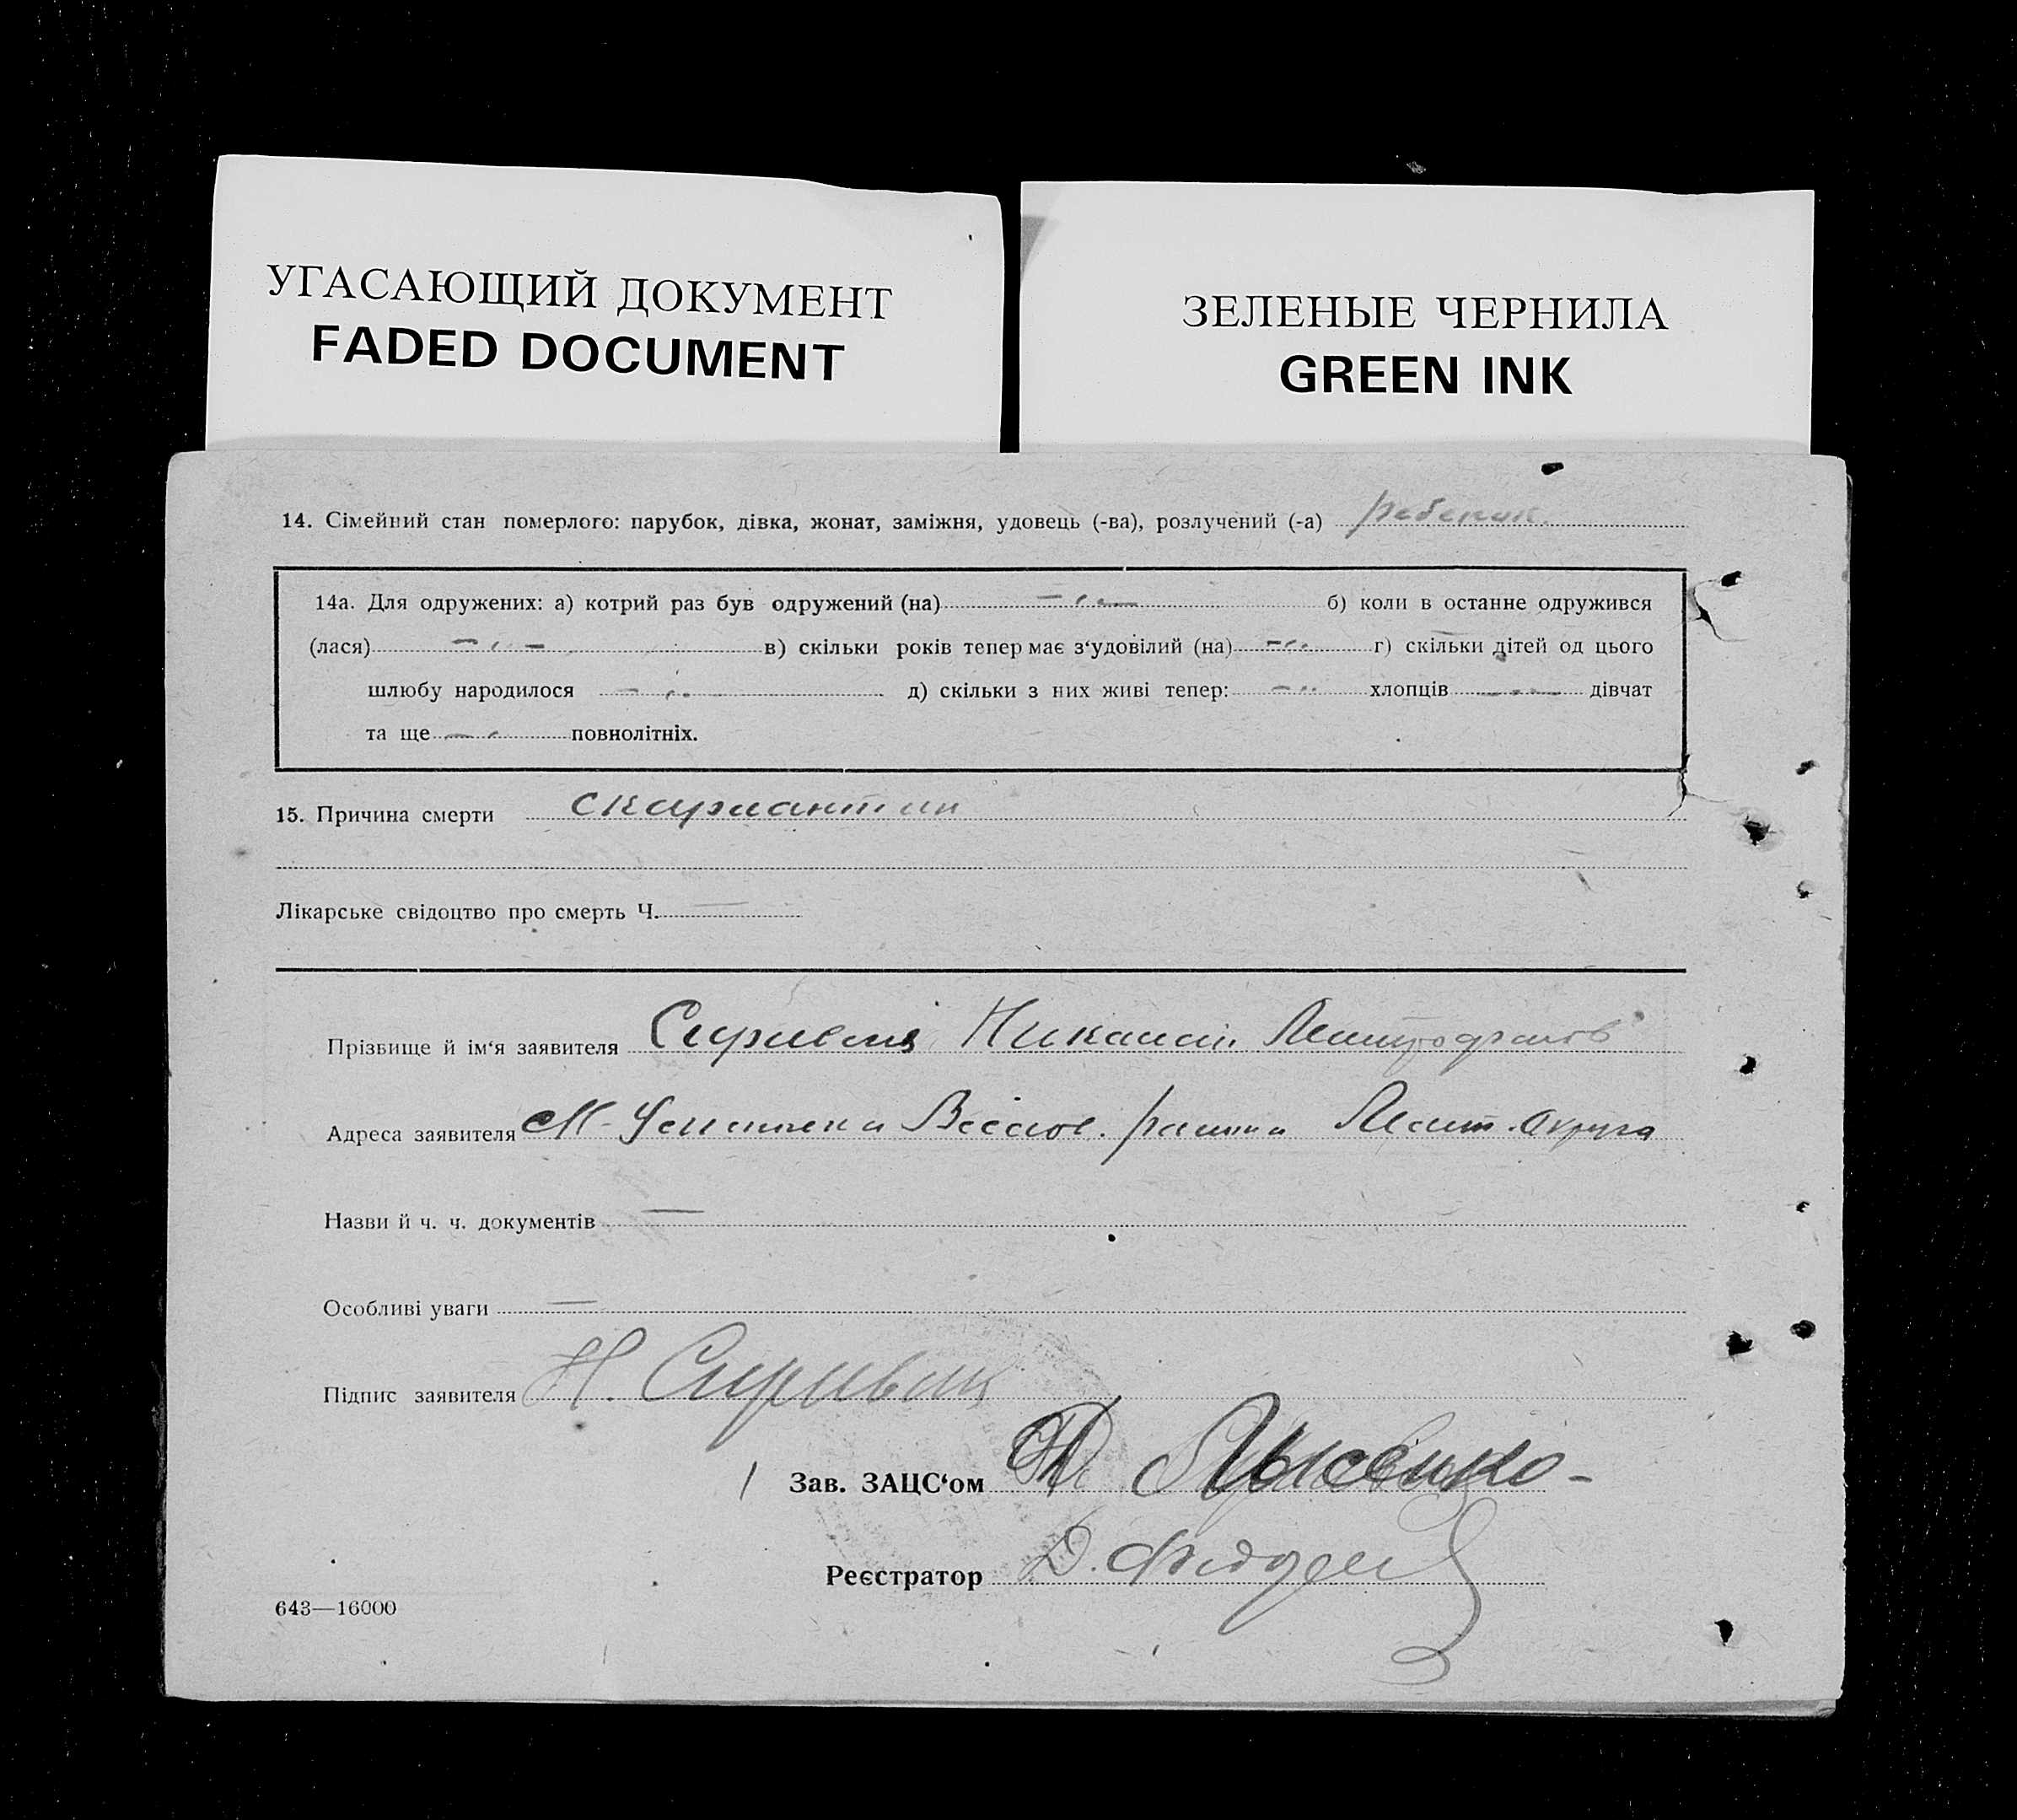 УГАСАЮЩИЙ ДОКУМЕНТ
FADED DOCUMENT
ЗЕЛЕНЫЕ ЧЕРНИЛА
GREEN INK
14. Сімейний стан померлого: парубок, дівка, жонат, заміжня, удовець (-ва), розлучений (-а) ребенок.
14а. Для одружених: а) котрий раз був одружений (на) б) коли в останне одружився
(лася) в) скільки років тепер має з‘удовілий (на) г) скільки дітей од цього
шлюбу народилося д) скільки з них живі тепер: хлопців дівчат
та ще повнолітніх.
15. Причина смерти скарлантин
Лікарське свідоцтво про смерть Ч. —
Прізвище й ім‘я заявителя
Адреса заявителя округа
Назви й ч. ч. документів —
Особливі уваги —
Підпис заявителя Н.
Зав. ЗАЦС‘ом Лысенко
Реєстратор Д.
643—16000